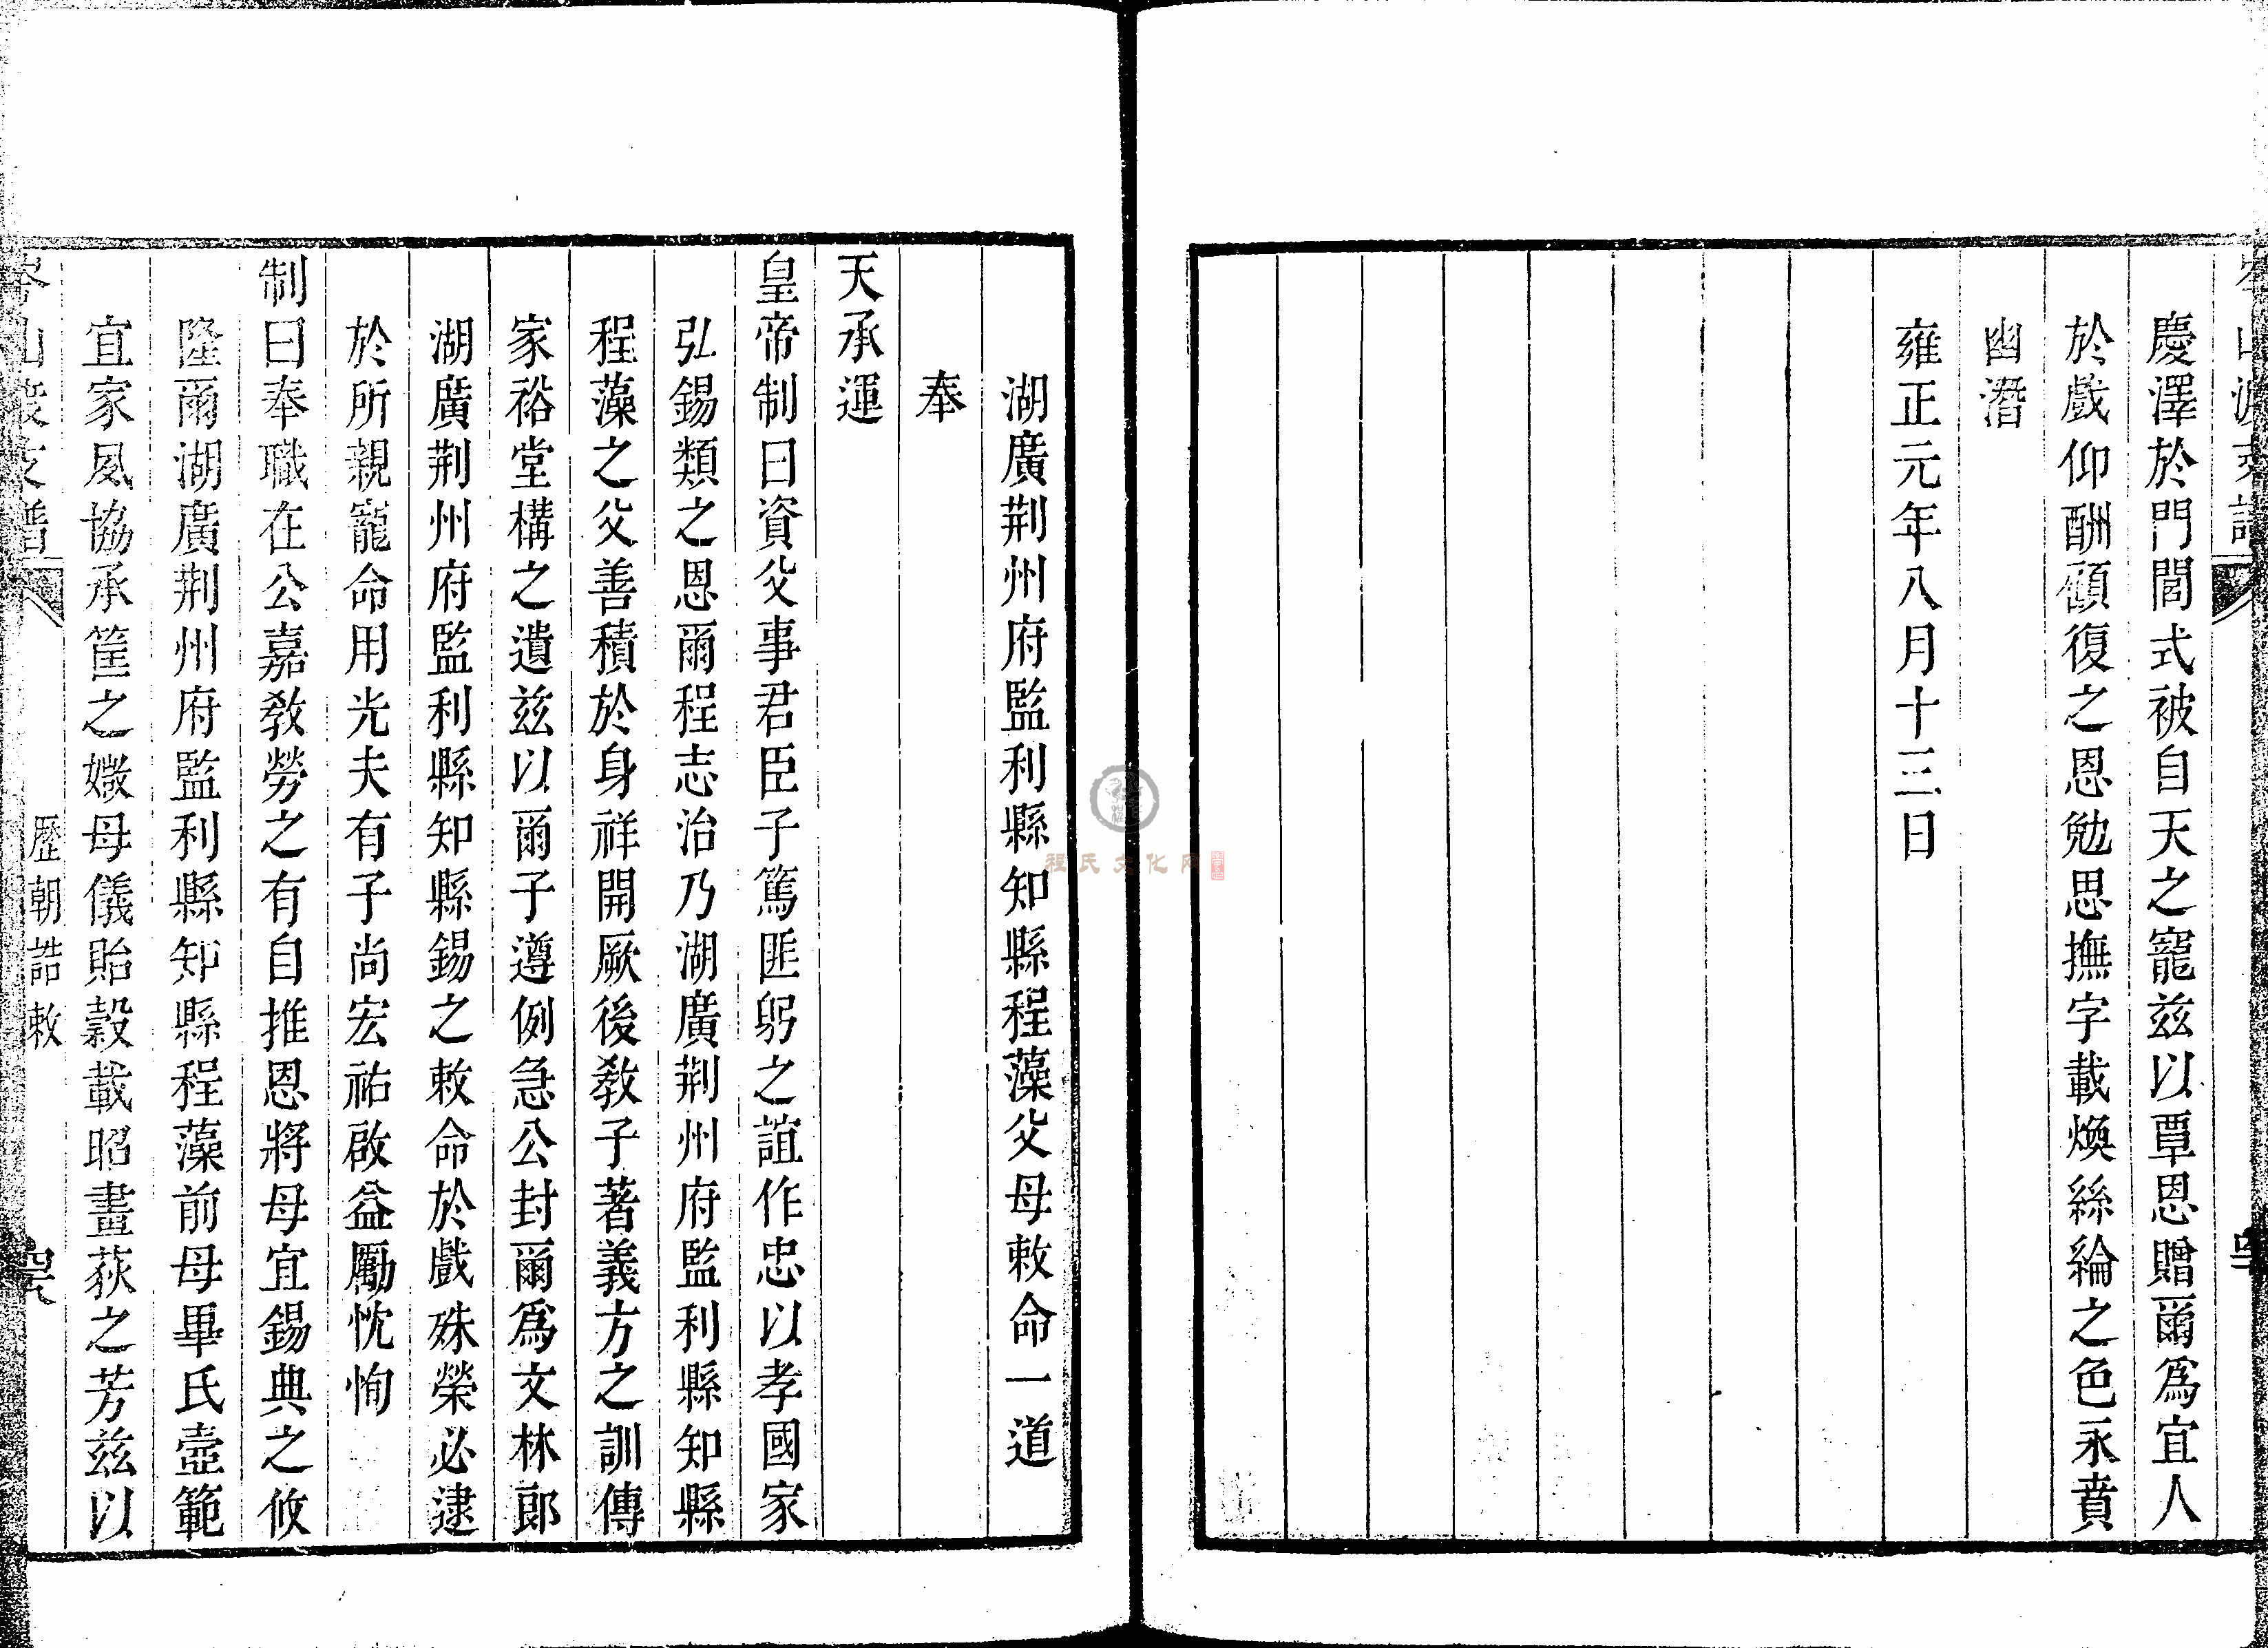 慶澤於門閭式被自天之寵兹以覃恩贈爾爲宜人
於戲仰酬顧復之恩勉思撫字載煥絲綸之色永賁
幽潛
雍正元年八月十三日
湖廣荆州府監利縣知縣程藻父母敕命一道
奉
天承運
皇帝制曰資父事君臣子篤匪躬之誼作忠以孝國家
弘錫類之恩爾程志治乃湖廣荆州府監利縣知縣
程藻之父善積於身祥開厥後教子著義方之訓傳
家裕堂構之遺兹以爾子遵例急公封爾爲文林郎
湖廣荆州府監利縣知縣錫之敕命於戲殊榮必逮
於所親寵命用光夫有子尚宏祐啟益勵忱恂
制曰奉職在公嘉教勞之有自推恩將母宜錫典之攸
隆爾湖廣荆州府監利縣知縣程藻前母畢氏壼範
宜家夙協承筐之媺母儀貽穀載昭畫荻之芳兹以
歷朝誥敕
程氏文化网